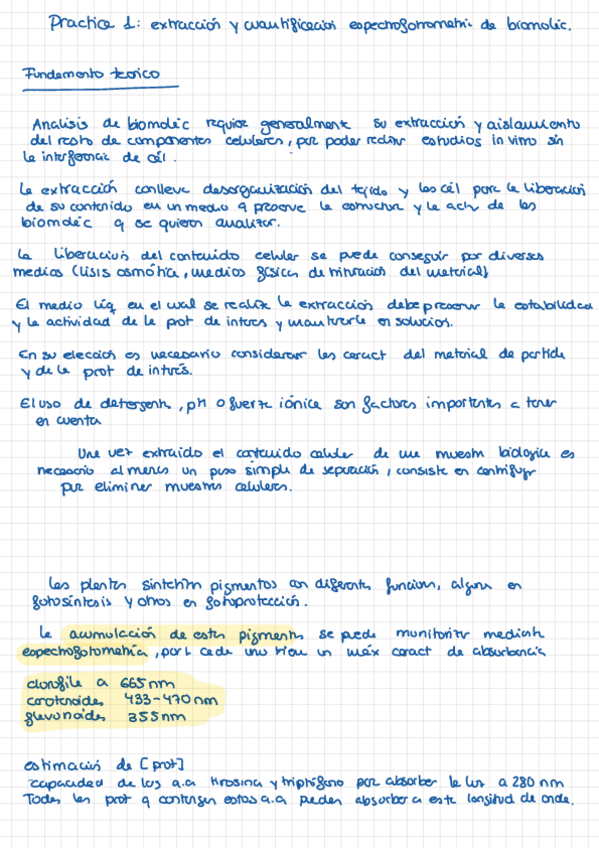 Practica 1: extracción y cuantificación espectrofotometric de biomoléc.
Fundamento teorico
Analisis de biomoléc requiere generalmente su extracción y aislamiento
del resto de componentes celulares, para poder realizar estudios in vitro sin
la interferencia de cél.
La extracción conlleva desorganización del tejido y las cél para la liberación
de su contenido en un medio q preserve la estructura y la act de las
biomoléc q se quieran analizar.
La liberación del contenido celular se puede conseguir por diversos
medios (lisis osmótica, medios físicos de trituración del material)
El medio líq en el cual se realiza la extracción debe preservar la estabilidad
y la actividad de la prot de interes y mantenerla en solución.
En su elección es necesario considerar las caract del material de partida
y de la prot de interés.
El uso de detergente, pH o fuerza iónica son factores importantes a tener
en cuenta
Una vez extraido el contenido celular de una muestra biologica es
necesario al menos un paso simple de separación, consiste en centrifugar
para eliminar muestras celulares.
Las plantas sintetizan pigmentos con diferentes funciones, algunas en
fotosíntesis y otros en fotoprotección.
La acumulación de estos pigmentos se puede monitorizar mediante
espectrofotometria, por l cada uno tiene un máx caract de absorbancia
clorofila a 665 nm
carotenoides 433-470 nm
flavonoides 355 nm
estimación de [prot]
capacidad de los a.a tirosina y triptófano para absorber la luz a 280 nm
Todas las prot q contengan estos a.a pueden absorber a esta longitud de onda.